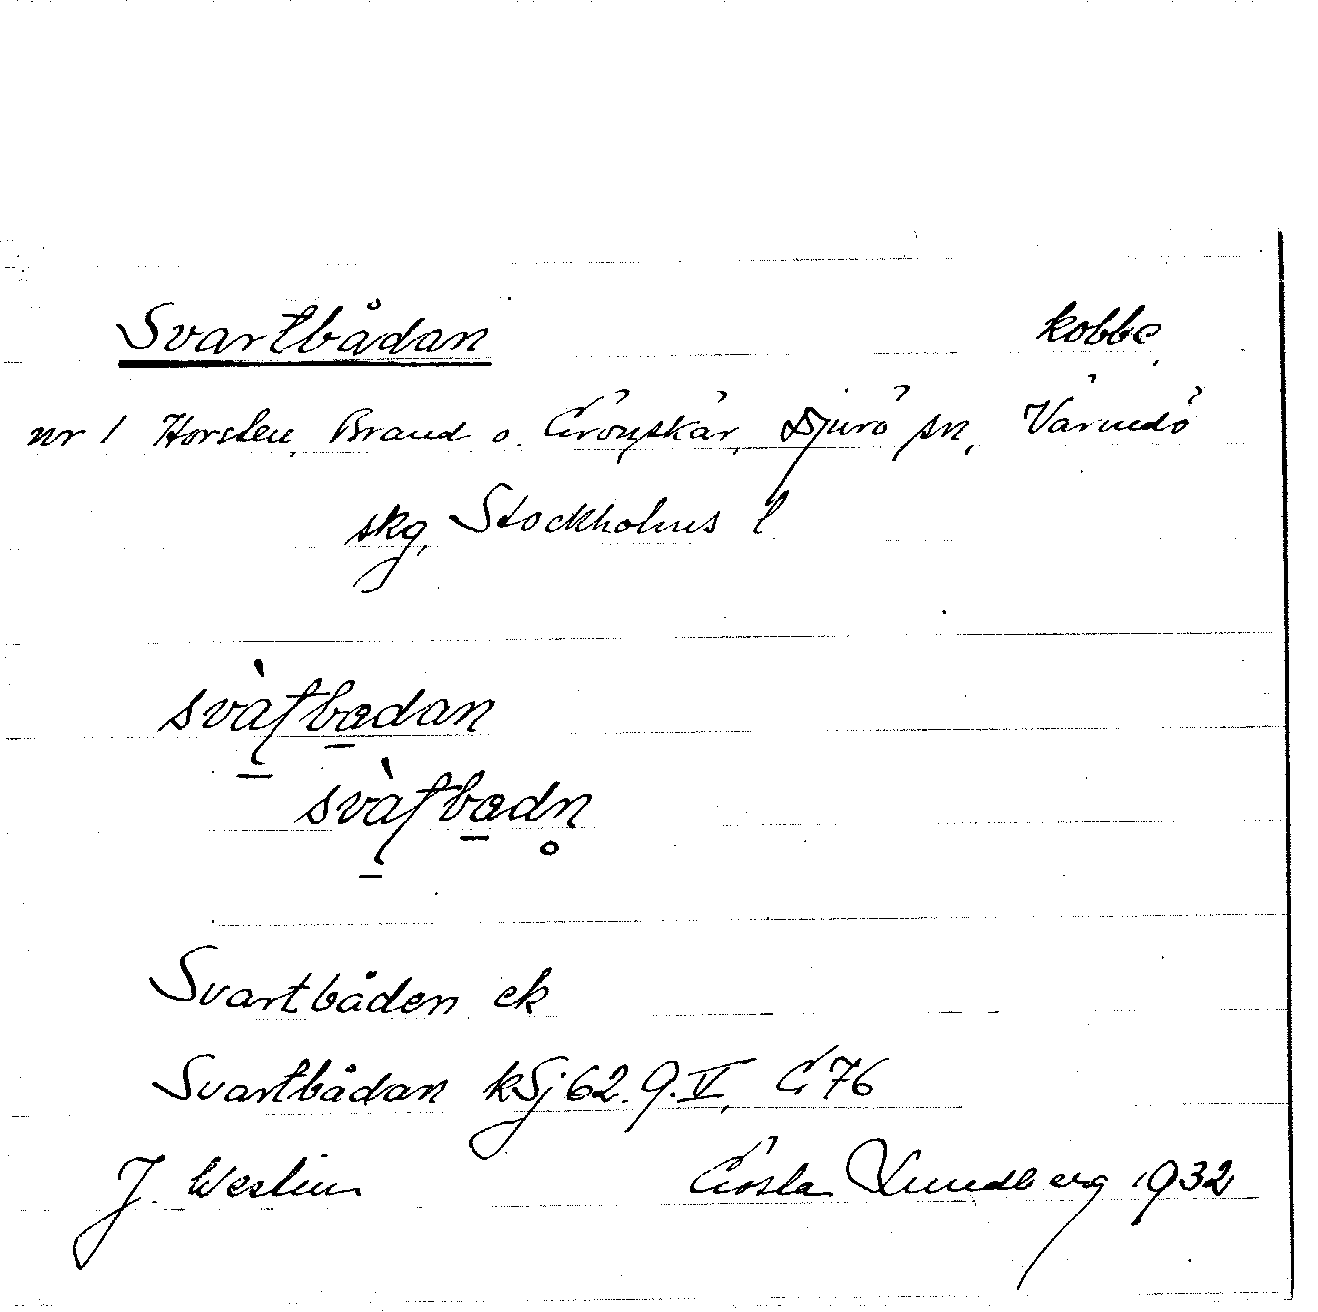 Svartbådan kobbe
nr 1 Horsten, Brand o. Grönskär, Djurö sn, Värmdö
skg, Stockholms l
svàʈbadan
svàʈbadn̥
Svartbåden ek
Svartbådan kSj 62. 9. V, G 76
J. Westin Gösta Lundberg 1932